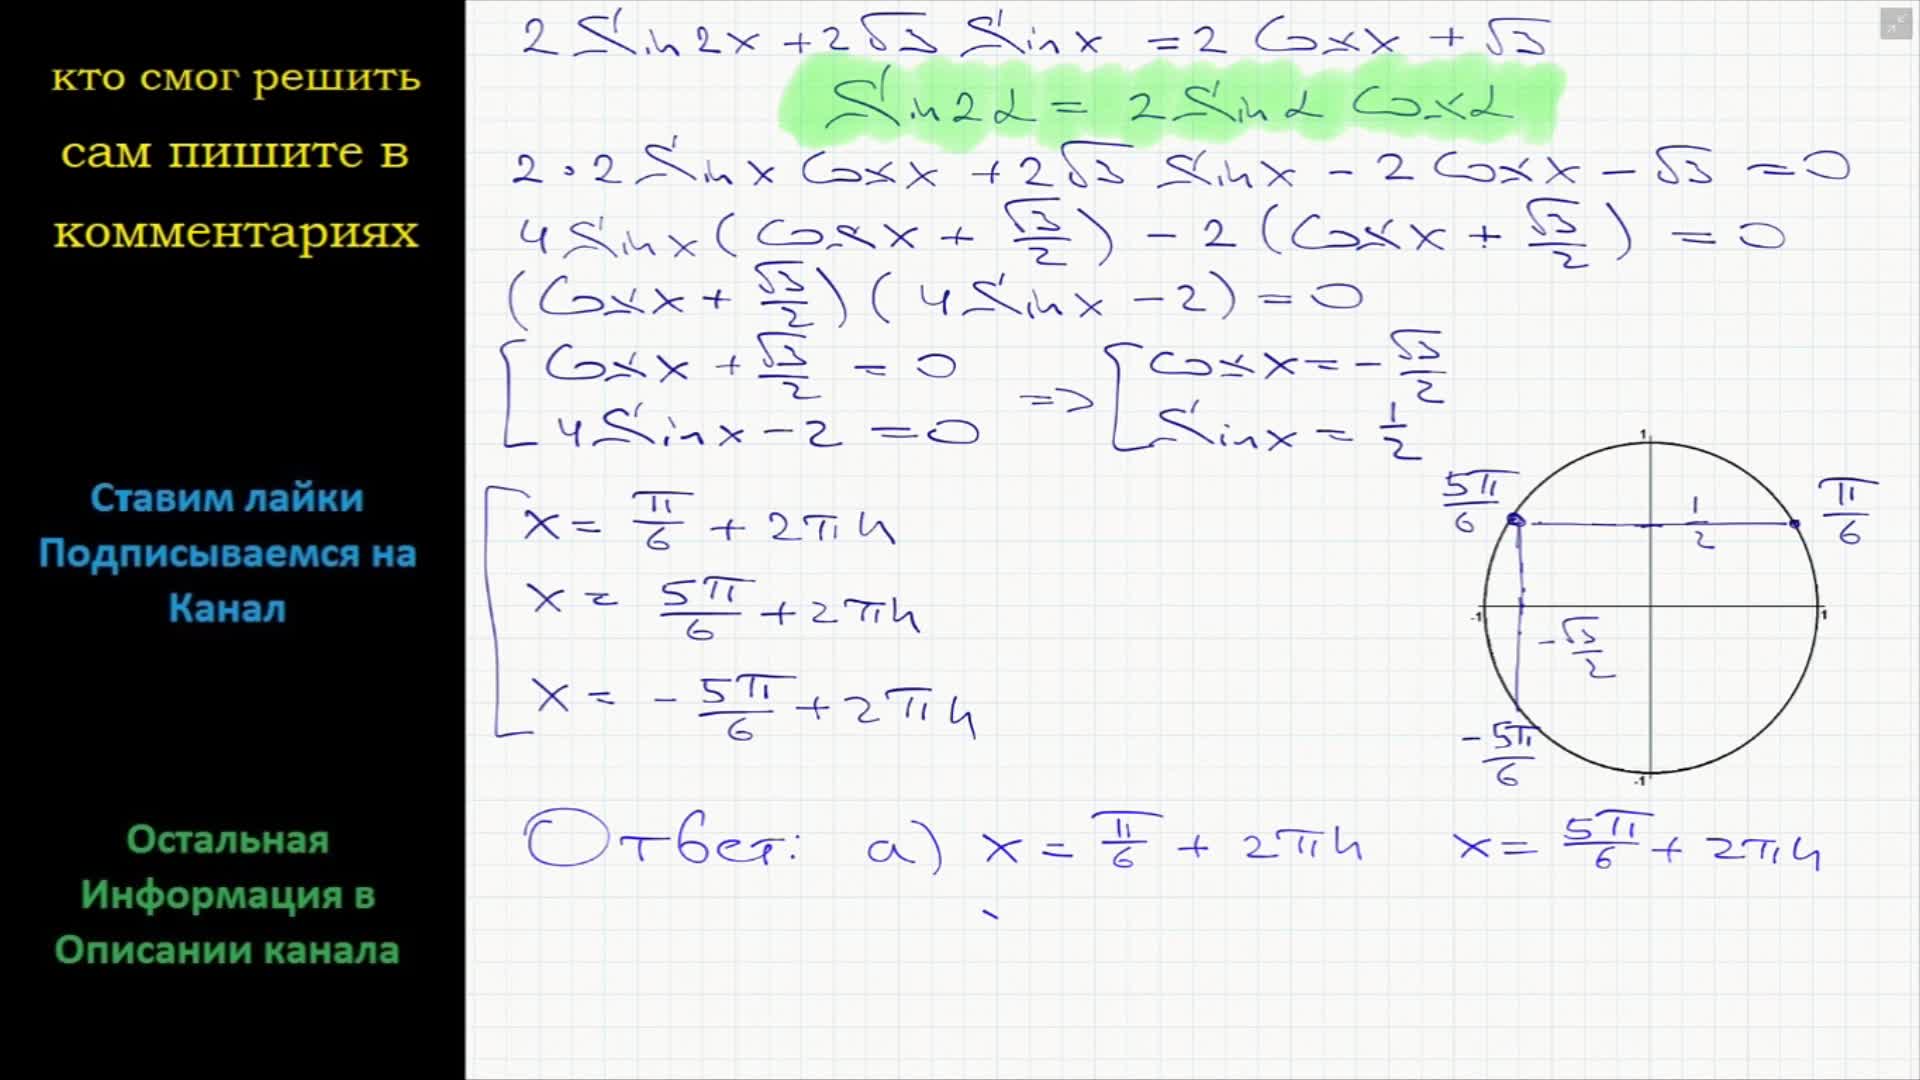 кто смог решить
сам пишите в
комментариях
Ставим лайки
Подписываемся на
Канал
Остальная
Информация в
Описании канала
2 Sin2x + 2√3 Sinx = 2 Cosx + √3
Sin2α = 2 Sinα Cosα
2 · 2 Sinx Cosx + 2√3 Sinx - 2 Cosx - √3 = 0
4 Sinx (Cosx + √3/2) - 2 (Cosx + √3/2) = 0
(Cosx + √3/2) (4 Sinx - 2) = 0
[ Cosx + √3/2 = 0 => [ Cosx = - √3/2
4 Sinx - 2 = 0 Sinx = 1/2
[ x = π/6 + 2πn
x = 5π/6 + 2πn
x = - 5π/6 + 2πn
1
5π/6 1/2 π/6
-1 1
- √3/2
- 5π/6
-1
Ответ: а) x = π/6 + 2πn x = 5π/6 + 2πn